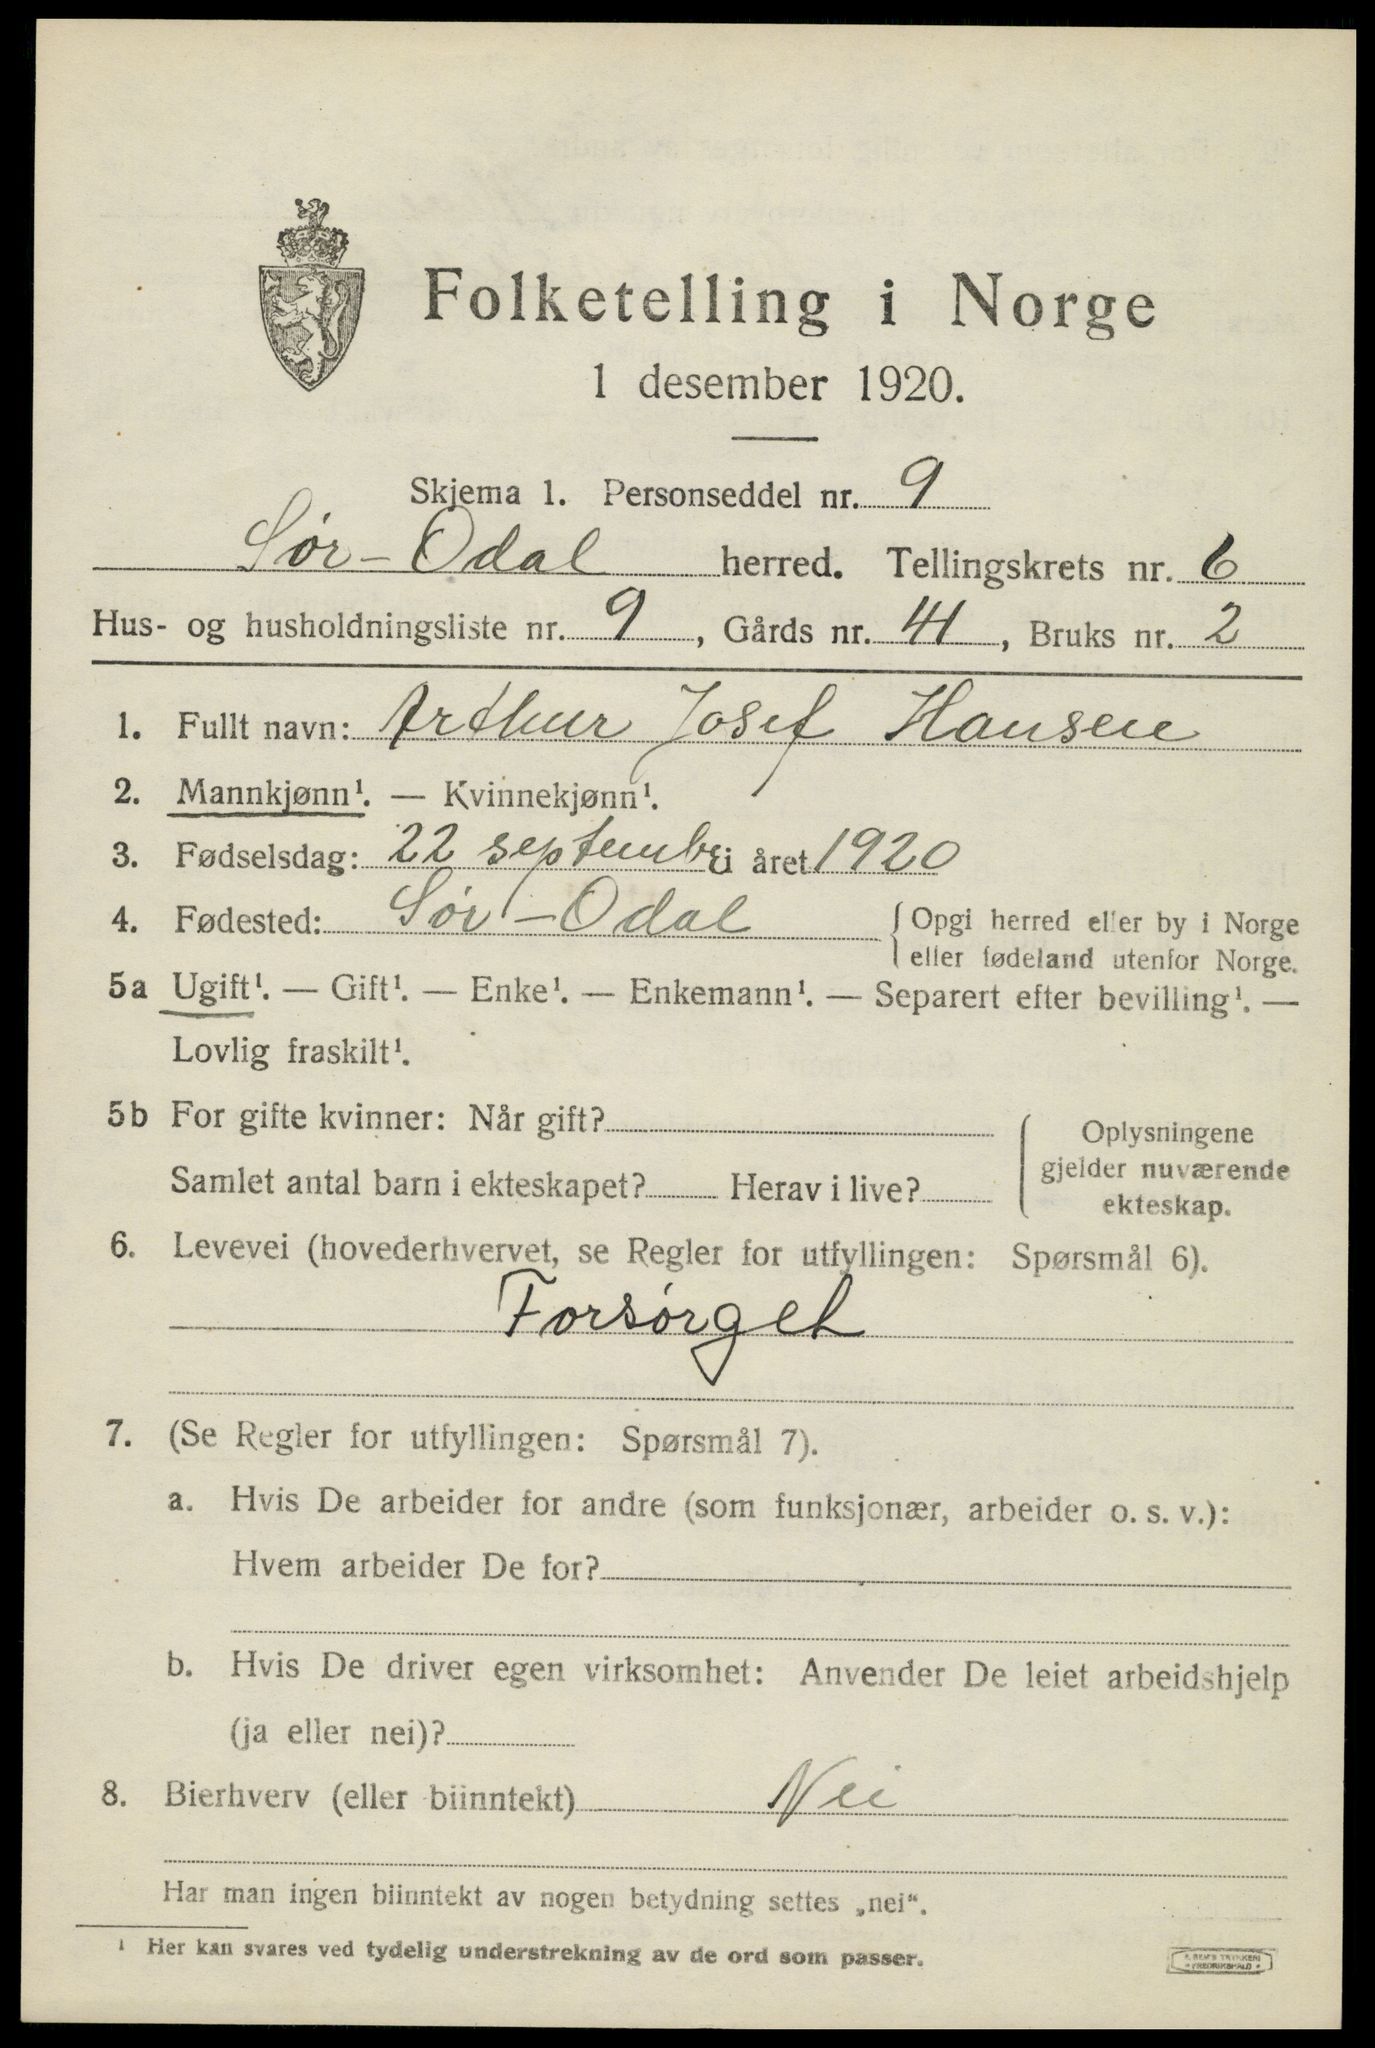 Folketelling i Norge
1 desember 1920.
Skjema 1. Personseddel nr. 9
Sør-Odal herred. Tellingskrets nr. 6
Hus- og husholdningsliste nr. 9, Gårds nr. 41, Bruks nr. 2
1. Fullt navn: Arthur Josef Hansen
2. Mannkjønn¹. — Kvinnekjønn¹.
3. Fødselsdag: 22 septembr i året 1920
4. Fødested: Sør-Odal { Opgi herred eller by i Norge
eller fødeland utenfor Norge.
5a Ugift¹. — Gift¹. — Enke¹. — Enkemann¹. — Separert efter bevilling¹. —
Lovlig fraskilt¹.
5b For gifte kvinner: Når gift?
Samlet antal barn i ekteskapet? Herav i live?
Oplysningene
gjelder nuværende
ekteskap.
6. Levevei (hovederhvervet, se Regler for utfyllingen: Spørsmål 6).
Forsørget
7. (Se Regler for utfyllingen: Spørsmål 7).
a. Hvis De arbeider for andre (som funksjonær, arbeider o. s. v.):
Hvem arbeider De for?
b. Hvis De driver egen virksomhet: Anvender De leiet arbeidshjelp
(ja eller nei)?
8. Bierhverv (eller biinntekt) Nei
Har man ingen biinntekt av nogen betydning settes „nei“.
¹ Her kan svares ved tydelig understrekning av de ord som passer.
TRYKKERI
FREDRIKSHALD